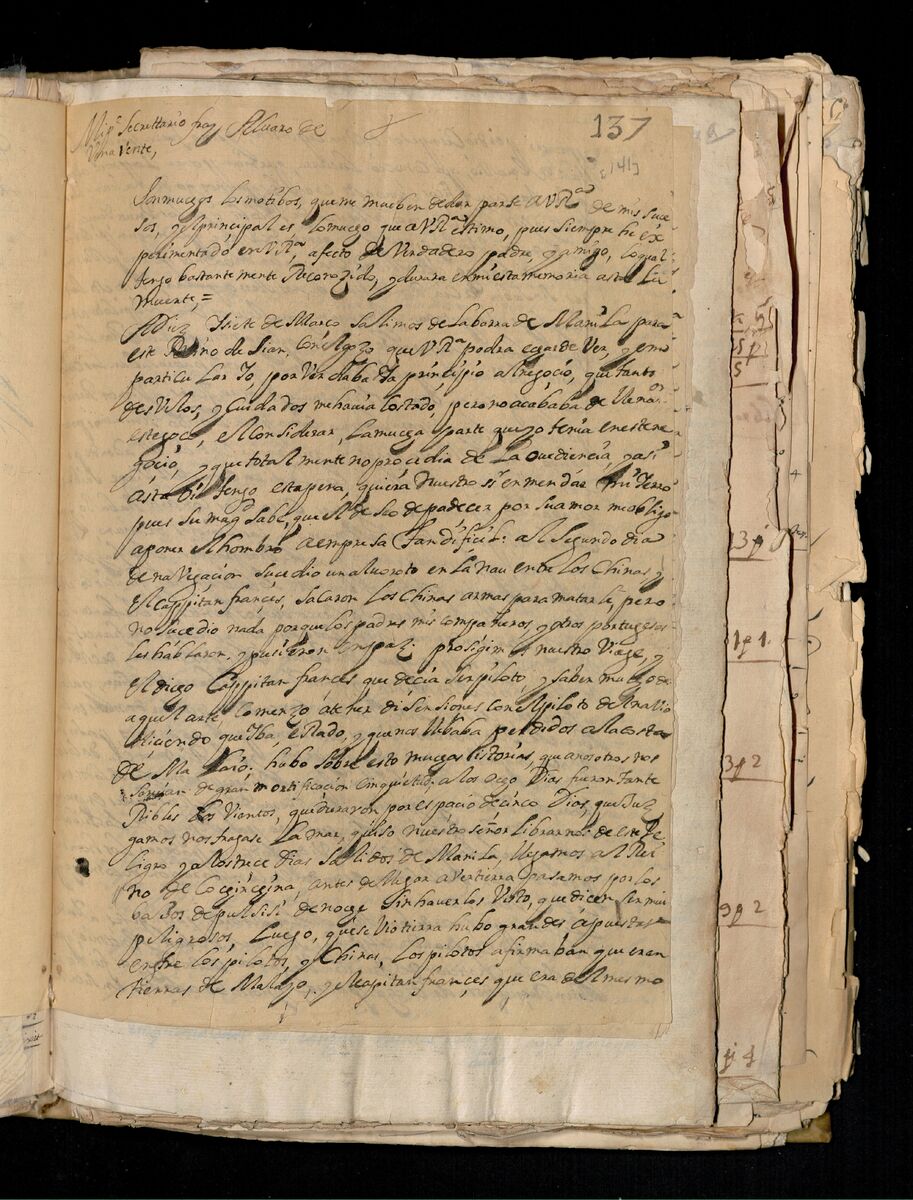 Secrettario fray Alvaro de
Bena Vente,
137
[141]
Son muchos los motibos, que me mueben de dar parte a V Rª de mis suce
sos, y el principal es lo mucho que a V Rª estimo, pues siempre he ex
perimentado en V Rª, afecto de Verdadero padre, y amigo, lo qual
tengo bastantemente Reconozido, y durara en mi esta memoria asta la
muerte,=
A diez y siete de Março salimos de la barra de Manila para
este Reino de Sian, con el gozo que V Rª podra echar de Ver, y en
particular Yo, por Ver daba ya principio al negocio, que tantos
desvelos, y Cuidados me havia costado, pero no acababa de llenar
este goço, el considerar, la mucha parte que yo tenia en este ne
goçio, y que totalmente no procedia de la ovediencia, y asi
asta oi tengo esta pena, quiera nuestro sr enmendar mi Yerro
pues su magd sabe, que el deseo de padecer por su amor me obligo
a poner el hombro a empresa tan difiçil: al segundo dia
de navegaçion sucedio un alvoroto en la nau entre los Chinas y
el Cappitan françes, sacaron los Chinas armas para matarle, pero
no sucedio nada porque los padres mis compañeros, y otros portugeses
les hablaron, y pusieron en paz: prosigimos nuestro Viaje, y
el dicho Cappitan frances que decia ser piloto, y saber mucho de
aquel arte, comenzo a tener disensiones con el piloto de la navio
diçiendo que iba errado, y que nos llebaba perdidos a la costa
de Malaio; hubo sobre esto muchas istorias, que a nosotros nos
serbian de gran mortificaçion e inquietud; a los ocho dias fueron tan te
rribles los Vientos, que duraron por espacio de cinco dias, que Juz
gamos nos tragase la mar, quiso nuestro señor librarnos de este pe
ligro y a los trece dias salidos de Manila, llegamos al Rei
no de Cochinchina, antes de llegar a ver tierra pasamos por los
baxos de pulsisi de noche sin haverlos Visto, que dicen ser mui
peligrosos, Luego, que se vio tierra hubo grandes apuestas
entre los pilotos, y Chinas, los pilotos afirmaban que eran
tierras de Malayo, y el capitan frances que era del mesmo